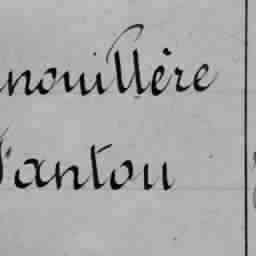 nouillère
Pantou